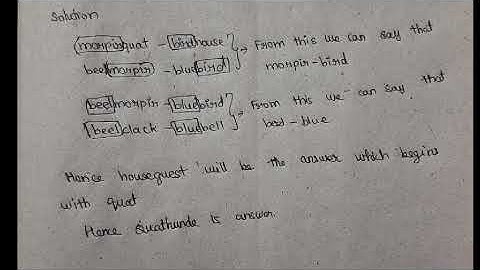 Solution
morpirquat - birdhouse } → From this we can say that
beelmorpir - bluebird morpir - bird
beelmorpir - bluebird } → From this we can say that
beelclack - bluebell beel - blue
Hence houseguest will be the answer which begins
with quat
Hence Quathunde is answer.